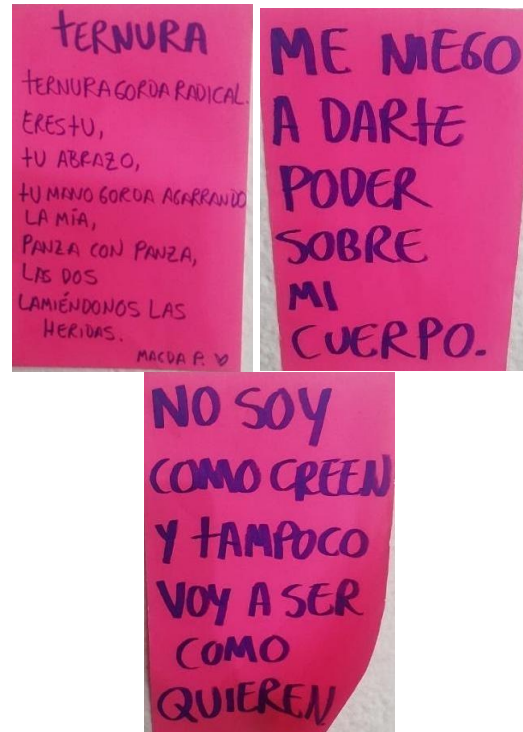 TERNURA
TERNURA GORDA RADICAL.
ERES TU,
TU ABRAZO,
TU MANO GORDA AGARRANDO
LA MÍA,
PANZA CON PANZA,
LAS DOS
LAMIÉNDONOS LAS
HERIDAS.
MAGDA P. ♡
ME NIEGO
A DARTE
PODER
SOBRE
MI
CUERPO.
NO SOY
COMO CREEN
Y TAMPOCO
VOY A SER
COMO
QUIEREN.